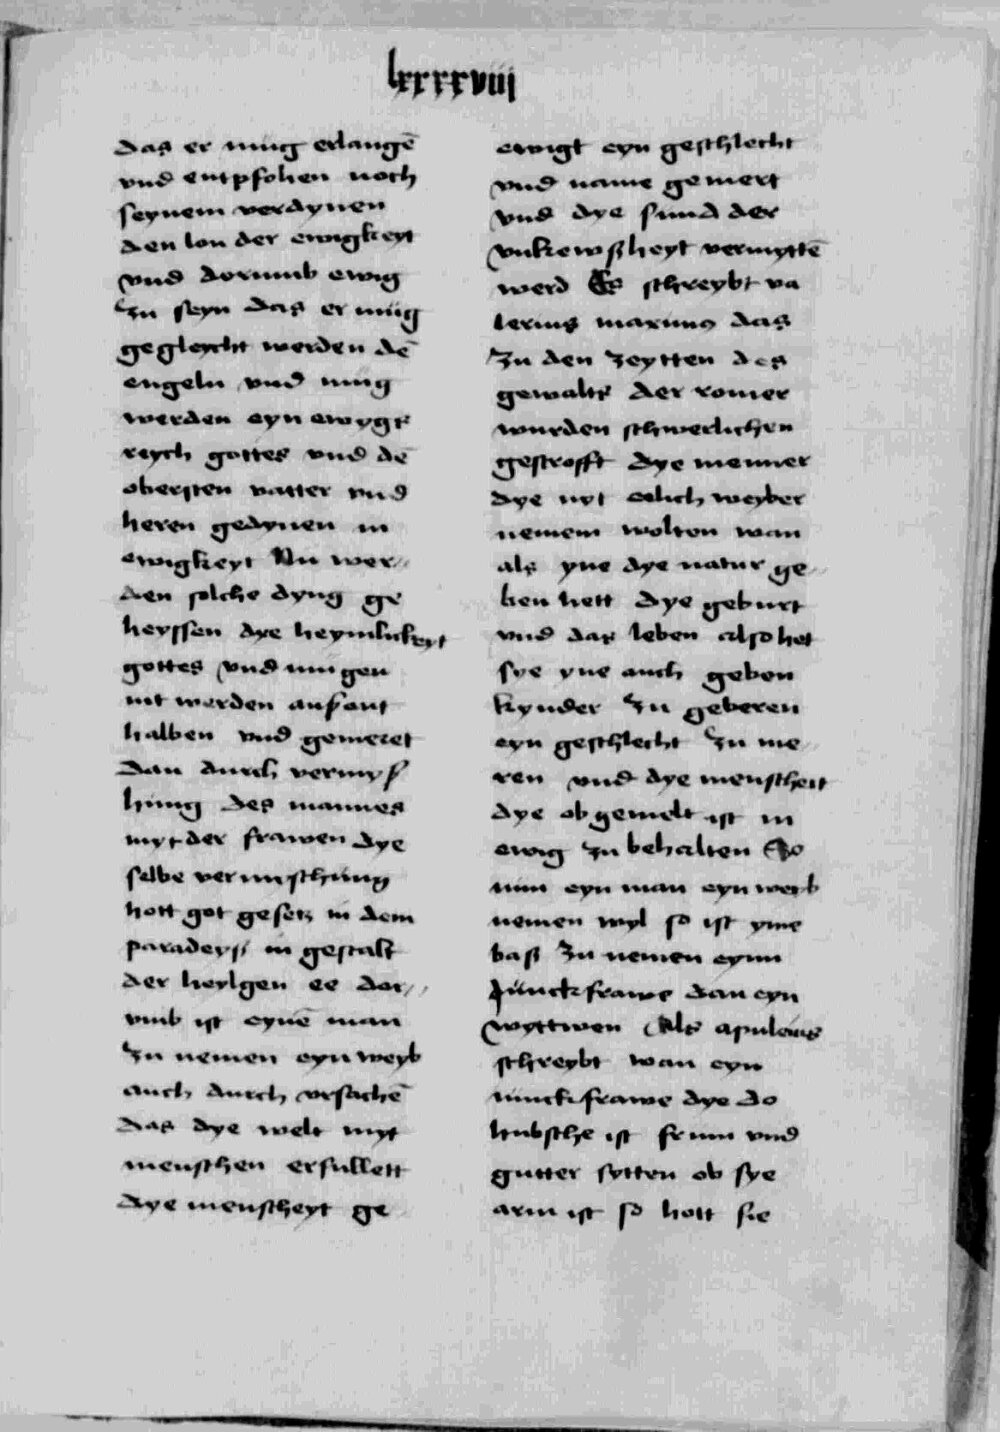 lxxxxviij
das er müg erlangē
vnd entpfohen noch
seynem verdynen
den lon der ewigkeyt
vnd dorumb ewig
zu seyn das er müg
gegleycht werden dē
engeln vnd müg
werden eyn ewygs
reych gottes vnd dē
obersten vatter vnd
heren gedynen in
ewigkeyt Nu wer//
den solche dyng ge
heyssen dye heymlickeyt
gottes vnd mugen
nit werden
halben vnd gemeret
dan durch vermys
hung des mannes
myt der frawen dye
selbe vermischung
hott got gesetz in dem
paradeyß in gestalt
der heylgen ee dar//
vmb ist eynē man
zu nemen eyn weyb
auch durch vrsachē
das dye welt myt
menschen erfullett
dye menscheyt ge
ewigt eyn geschlecht
vnd name gemert
vnd dye sund der
vnkewscheyt vermyttē
werd Es schreybt va
lerius maximus das
zu den zeytten des
gewalts der romer
wurden schwerlichen
gestrofft dye menner
dye nyt eelich weyber
nemem wolten wan
als yne dye natur ge//
ben hett dye geburt
vnd das leben also het
sye yne auch geben
kynder zu geberen
eyn geschlecht zu me//
ren vnd dye menscheit
dye obgemelt ist in
ewig zu behalten So
nun eyn man eyn weyb
nemen wyl so ist yme
baß zu nemen eynn
Junckfrawe dan eyn
wyttwen Als apuleius
schreybt wan eyn
iunckfrawe dye do
hubsche ist frum vnd
gutter sytten ob sye
arm ist so hott sie